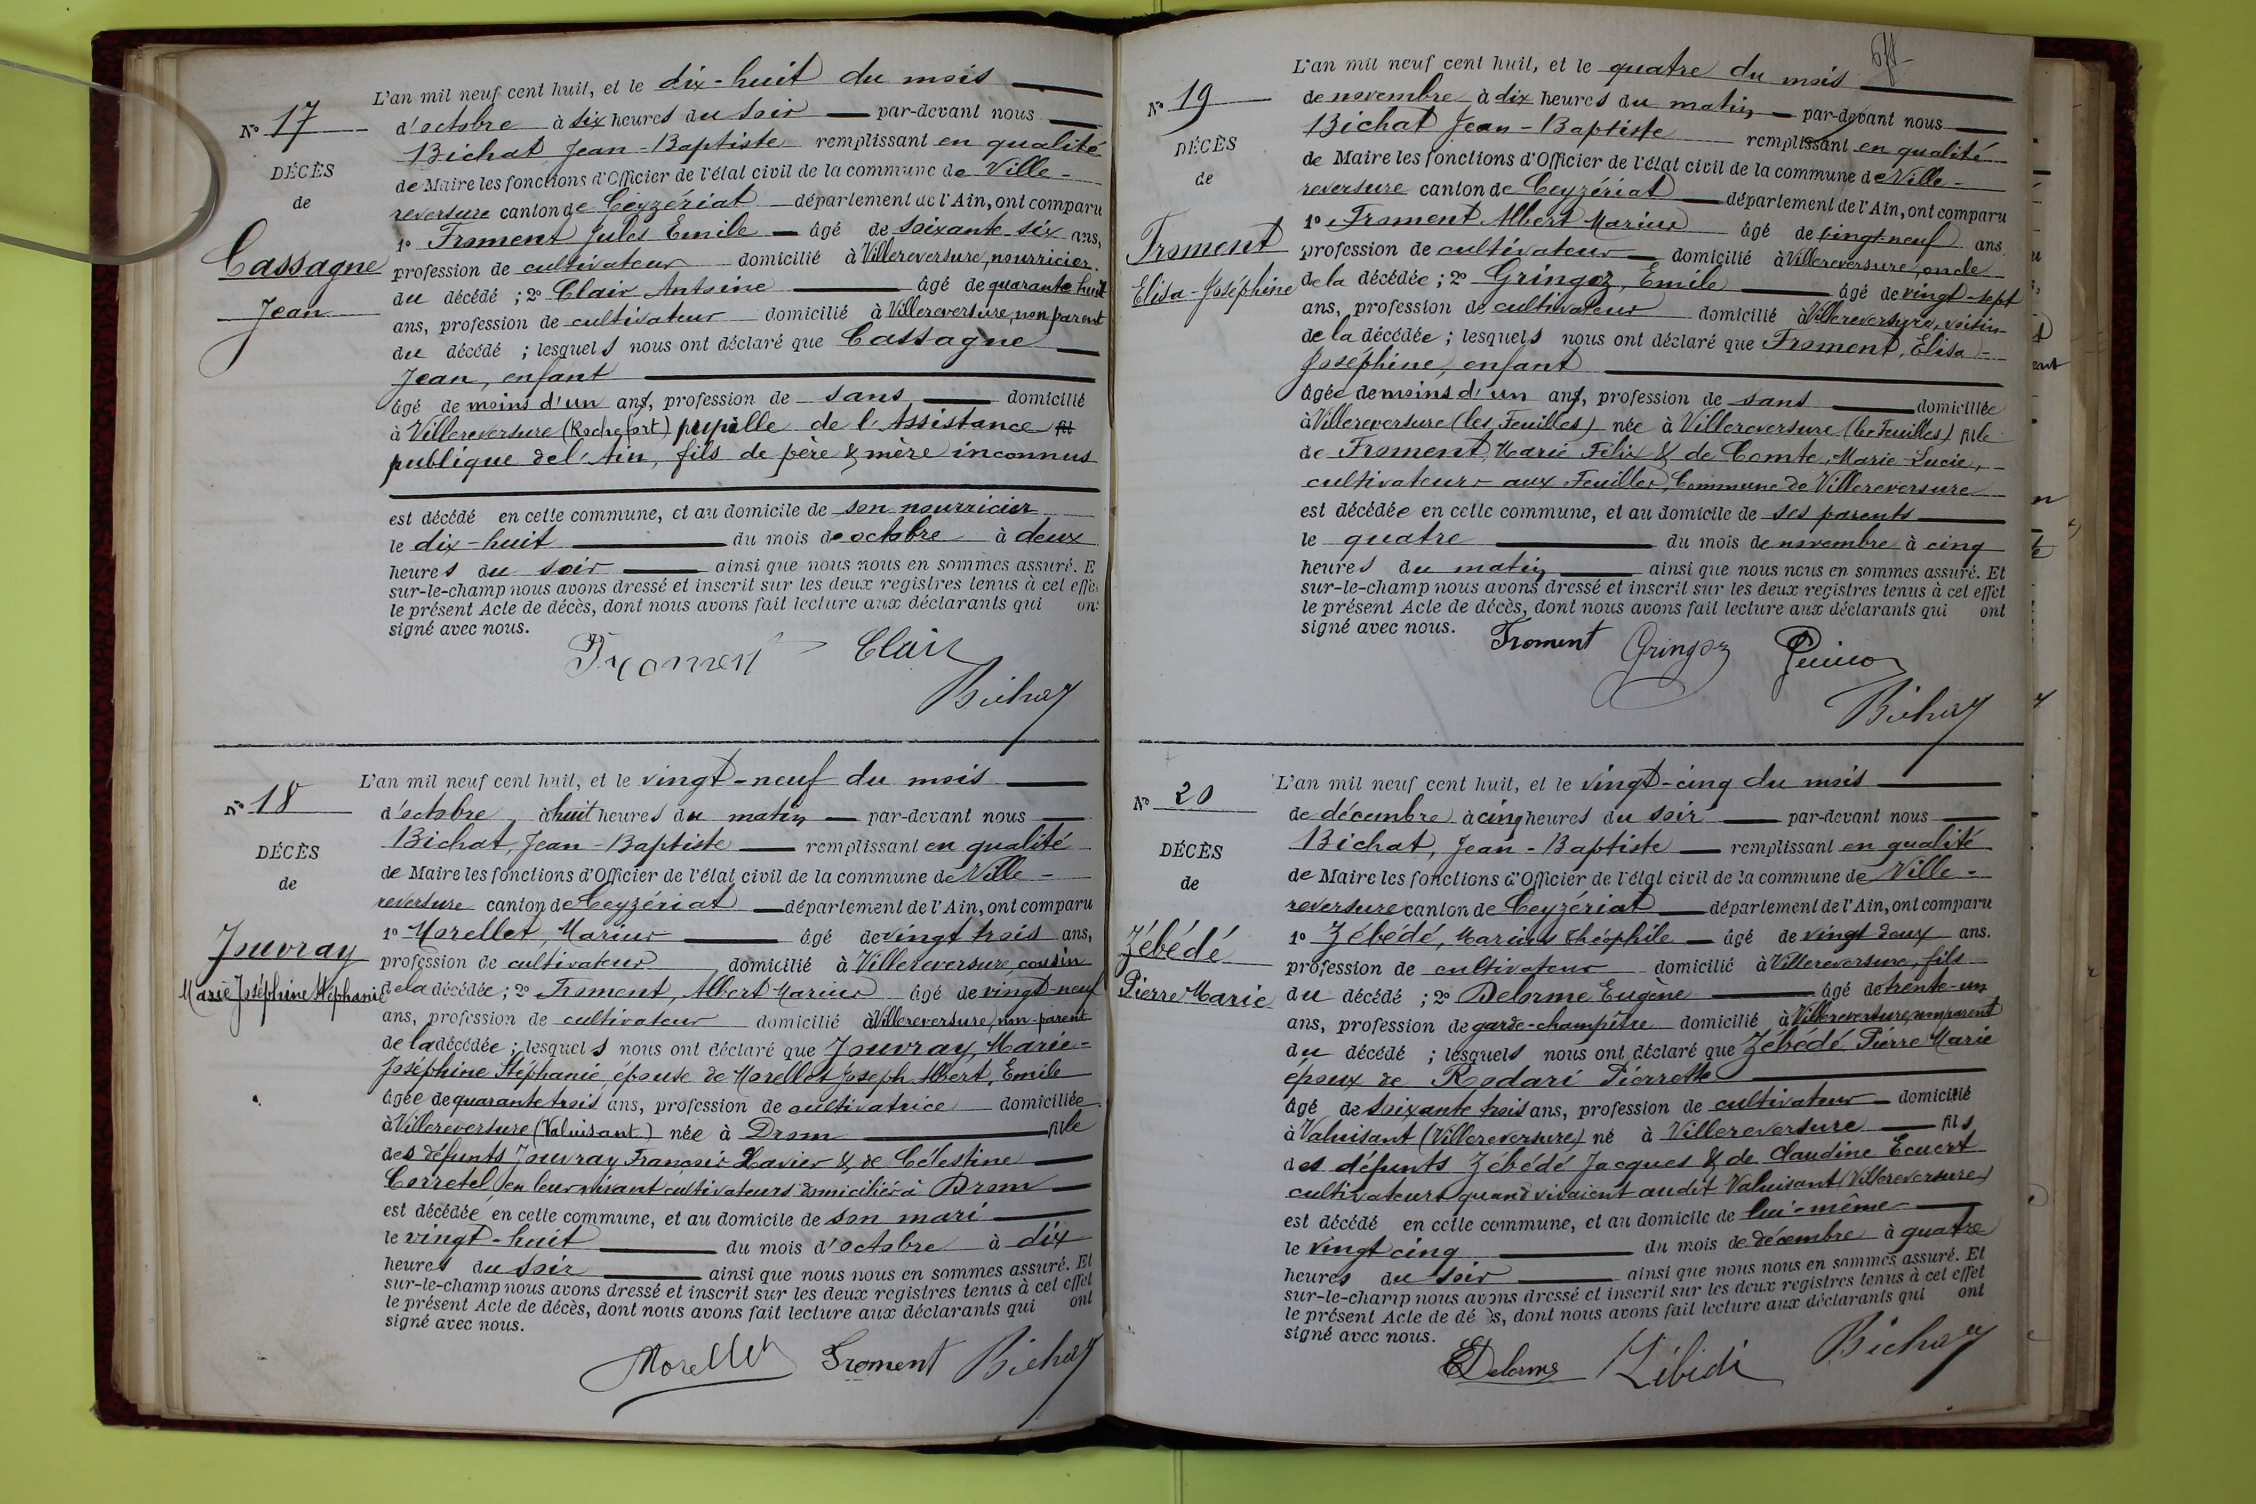 L'an mil neuf cent huit, et le dix-huit du mois
N° 17
d'octobre à six heures du soir par-devant nous
Bichat Jean-Baptiste remplissant en qualité
DÉCÈS
de Maire les fonctions d'Officier de l'état civil de la commune de Ville-
de
reversure canton de Ceyzériat département de l'Ain, ont comparu
1° Froment Jules Emile âgé de soixante-six ans,
Cassagne
profession de cultivateur domicilié à Villereversure, nourricier
du décédé ; 2° Clair Antoine âgé de quarante huit
Jean
ans, profession de cultivateur domicilié à Villereversure, non parent
du décédé ; lesquels nous ont déclaré que Cassagne
Jean, enfant
âgé de moins d'un ans, profession de sans domicilié
à Villereversure (Rochefort) pupille de l'Assistance fil
publique de l'Ain, fils de père & mère inconnus
est décédé en cette commune, et au domicile de son nourricier
le dix-huit du mois de octobre à deux
heures du soir ainsi que nous nous en sommes assuré. E
sur-le-champ nous avons dressé et inscrit sur les deux registres tenus à cet effe
le présent Acte de décès, dont nous avons fait lecture aux déclarants qui on
signé avec nous.
Froment Clair
Bichat
L'an mil neuf cent huit, et le vingt-neuf du mois
N° 18
d'octobre à huit heures du matin par-devant nous
Bichat, Jean-Baptiste remplissant en qualité
DÉCÈS
de Maire les fonctions d'Officier de l'état civil de la commune de Ville-
de
reversure canton de Ceyzériat département de l'Ain, ont comparu
1° Morellet, Marius âgé de vingt trois ans,
Jouvray
profession de cultivateur domicilié à Villereversure, cousin
Marie Joséphine Stéphanie
de la décédée ; 2° Froment, Albert Marius âgé de vingt-neuf
ans, profession de cultivateur domicilié à Villereversure, non parent
de la décédée ; lesquels nous ont déclaré que Jouvray, Marie-
Joséphine Stéphanie, épouse de Morellet Joseph Albert, Emile
âgée de quarante trois ans, profession de cultivatrice domiciliée
à Villereversure (Valuisant) née à Drom fille
des défunts Jouvray François Xavier & de Célestine
Corretel, en leur vivant cultivateurs domiciliés à Drom
est décédée en cette commune, et au domicile de son mari
le vingt-huit du mois d'octobre à dix
heures du soir ainsi que nous nous en sommes assuré. Et
sur-le-champ nous avons dressé et inscrit sur les deux registres tenus à cet effet
le présent Acte de décès, dont nous avons fait lecture aux déclarants qui ont
signé avec nous.
Morellet Froment Bichat
L'an mil neuf cent huit, et le quatre du mois
N° 19
de novembre à dix heures du matin par-devant nous
Bichat Jean-Baptiste remplissant en qualité
DÉCÈS
de Maire les fonctions d'Officier de l'état civil de la commune de Ville-
de
reversure canton de Ceyzériat département de l'Ain, ont comparu
1° Froment Albert Marius âgé de vingt-neuf ans
Froment
profession de cultivateur domicilié à Villereversure, oncle
Elisa-Joséphine
de la décédée ; 2° Gringoz, Emile âgé de vingt-sept
ans, profession de cultivateur domicilié à Villereversure, voisin
de la décédée ; lesquels nous ont déclaré que Froment, Elisa-
Joséphine, enfant
âgée de moins d'un ans, profession de sans domiciliée
à Villereversure (les Feuilles) née à Villereversure (les Feuilles) fille
de Froment, Marie Félix & de Comte, Marie-Lucie,
cultivateurs aux Feuilles, Commune de Villereversure
est décédée en cette commune, et au domicile de ses parents
le quatre du mois de novembre à cinq
heures du matin ainsi que nous nous en sommes assuré. Et
sur-le-champ nous avons dressé et inscrit sur les deux registres tenus à cet effet
le présent Acte de décès, dont nous avons fait lecture aux déclarants qui ont
signé avec nous.
Froment Gringoz
Bichat
L'an mil neuf cent huit, et le vingt-cinq du mois
N° 20
de décembre à cinq heures du soir par-devant nous
Bichat, Jean-Baptiste remplissant en qualité
DÉCÈS
de Maire les fonctions d'Officier de l'état civil de la commune de Ville-
de
reversure canton de Ceyzériat département de l'Ain, ont comparu
1° Zébédé, Marius Théophile âgé de vingt deux ans.
Zébédé
profession de cultivateur domicilié à Villereversure, fils
Pierre Marie
du décédé ; 2° Delorme Eugène âgé de trente-un
ans, profession de garde-champêtre domicilié à Villereversure, non parent
du décédé ; lesquels nous ont déclaré que Zébédé Pierre Marie
époux de Rodari Pierrette
âgé de soixante trois ans, profession de cultivateur domicilié
à Valuisant (Villereversure) né à Villereversure fils
des défunts Zébédé Jacques & de Claudine Ecuert
cultivateurs quand vivaient audit Valuisant (Villereversure)
est décédé en cette commune, et au domicile de lui-même
le vingt cinq du mois de décembre à quatre
heures du soir ainsi que nous nous en sommes assuré. Et
sur-le-champ nous avons dressé et inscrit sur les deux registres tenus à cet effet
le présent Acte de décès, dont nous avons fait lecture aux déclarants qui ont
signé avec nous.
E Delorme Zébédé Bichat